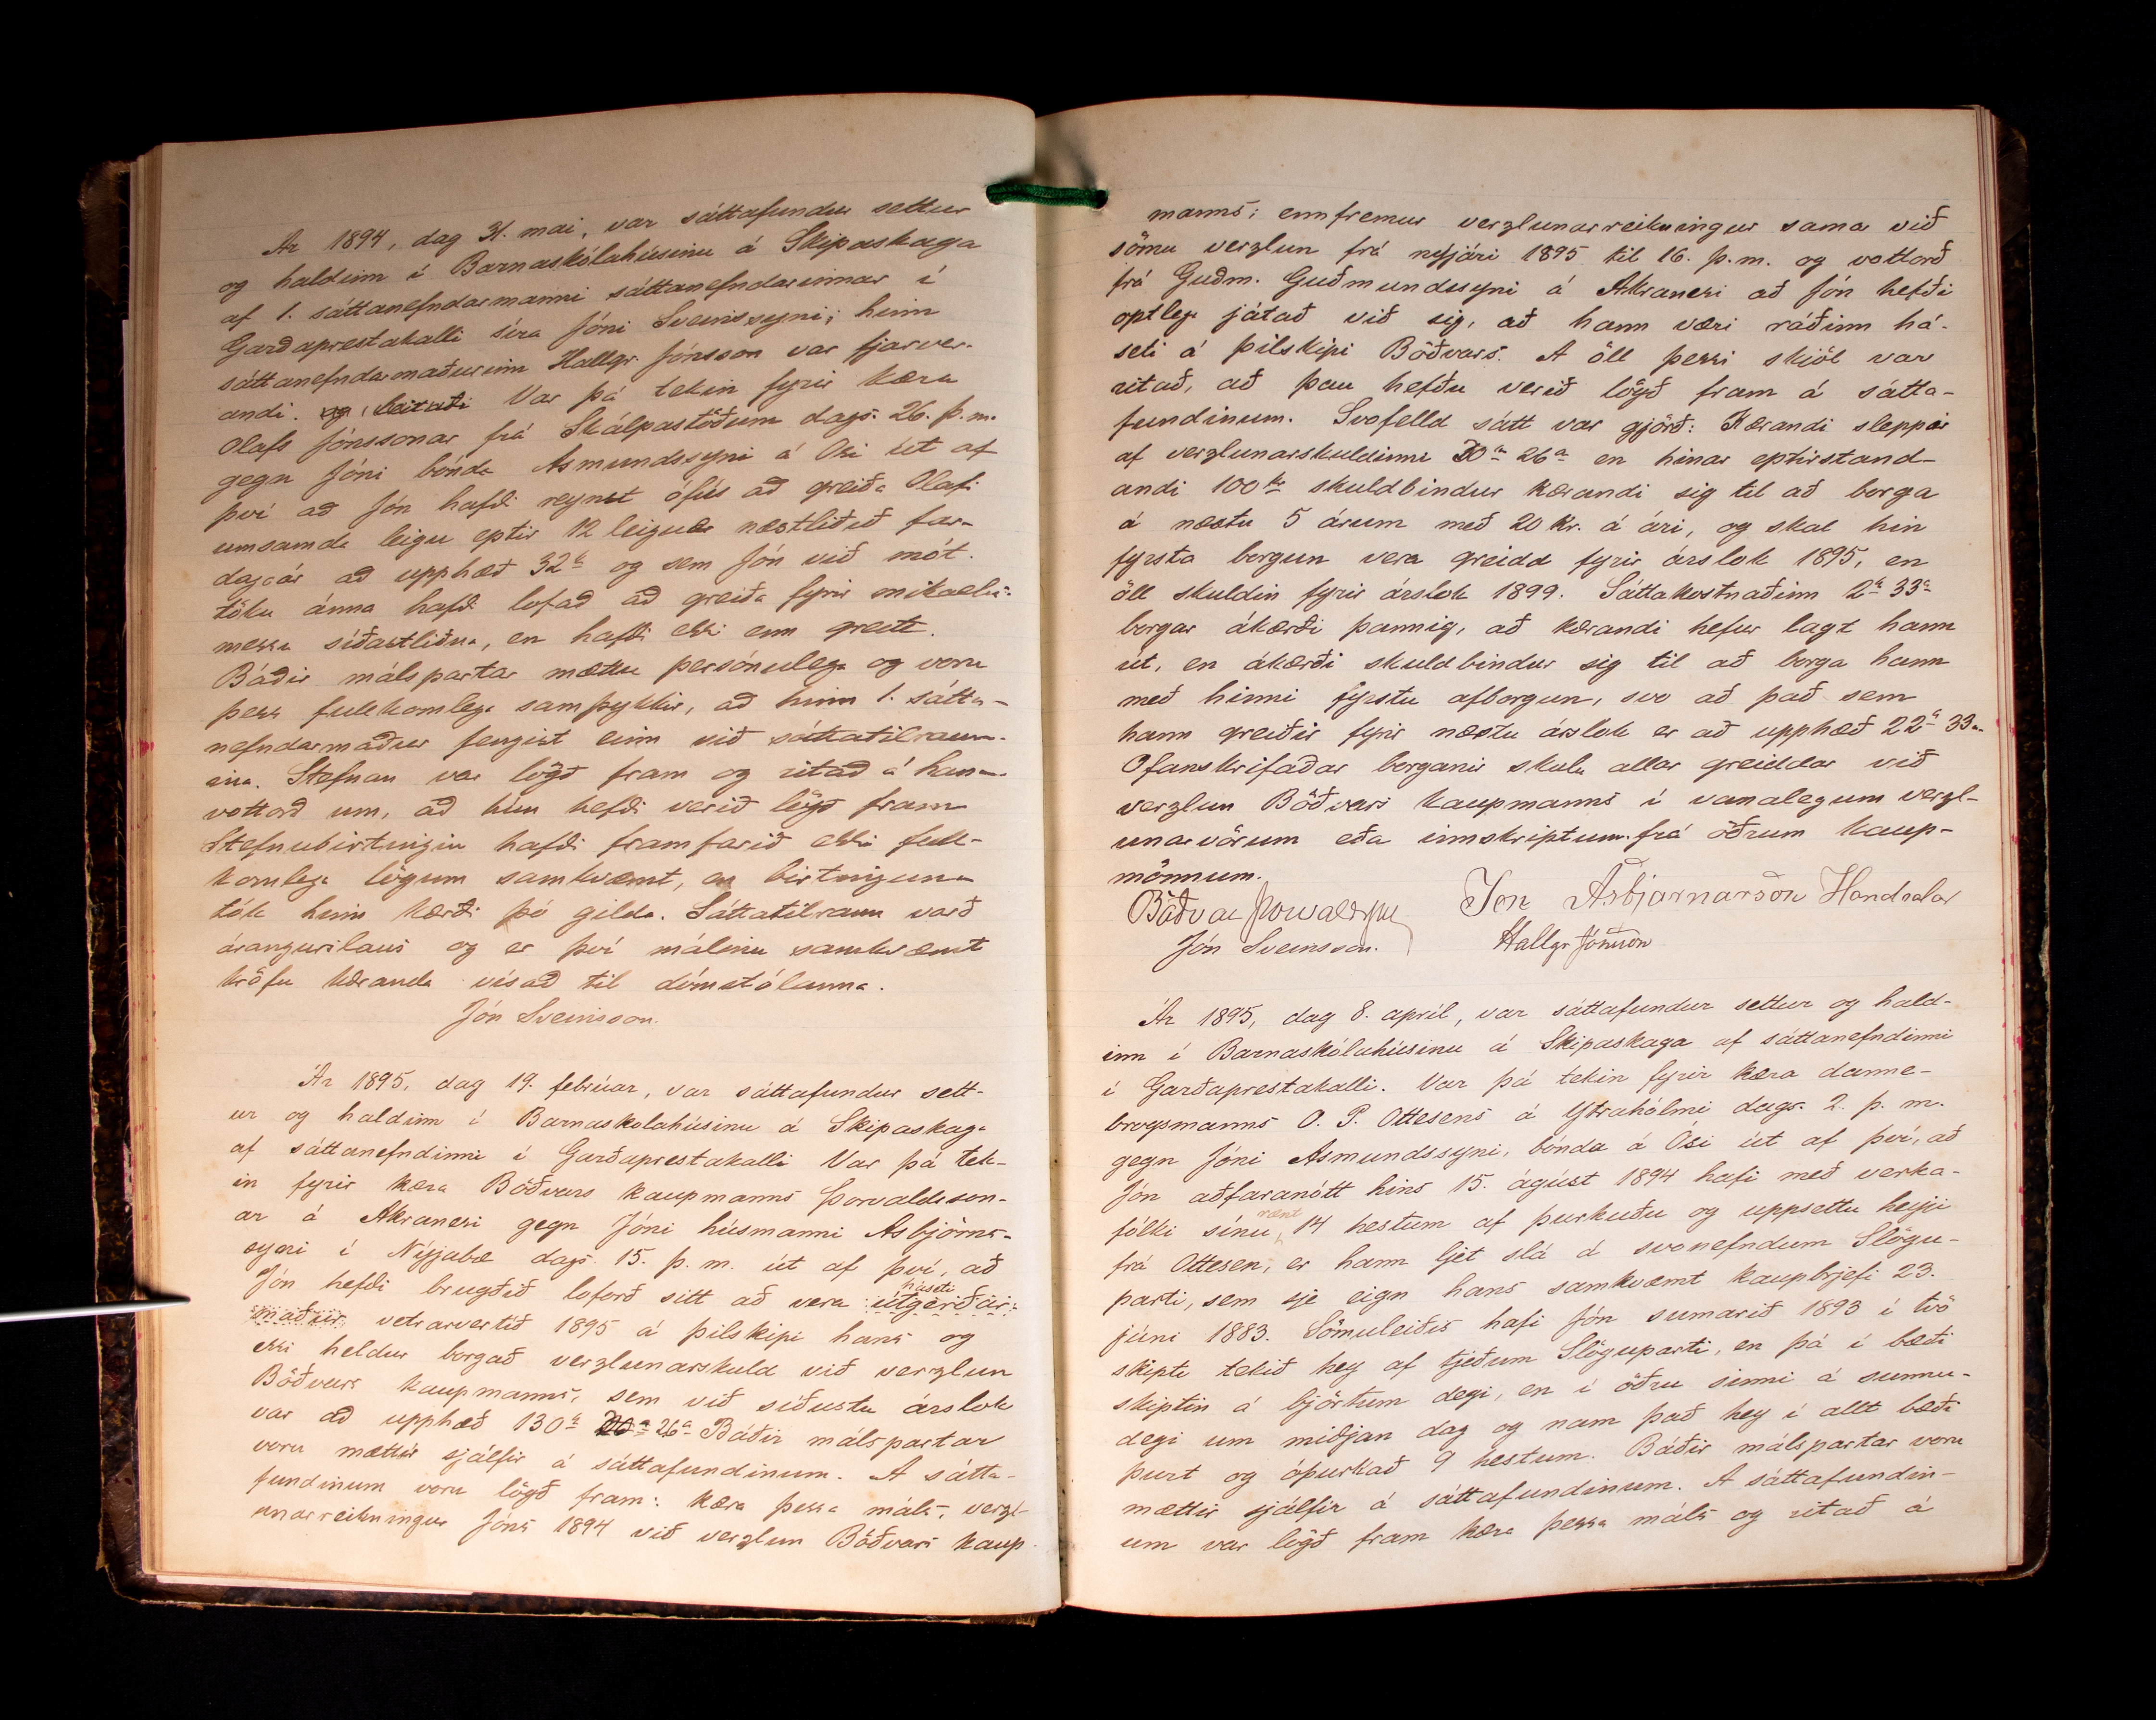 Ár 1894, dag 31. mai, var sáttafundur settur
og haldinn í Barnaskólahúsinu á Skipaskaga
af 1. sáttanefndarmanni sáttanefndarinnar í
Garðaprestakalli síra Jóni Sveinssyni; hinn
sáttanefndarmaðurinn Hallgr. Jónsson var fjarver-
andi. Var þá tekin fyrir kæra
Olafs Jónssonar frá Skálpastöðum dags. 26. þ.m.
gegn Jóni bónda Asmundssyni á Osi út af
því að Jón hafði reynst ófús að greiða Olafi
umsamda leigu eptir 12 leiguær næstliðið far-
dagaár að upphæð 32 kr og sem Jón við mót-
töku ánna hafði lofað að greiða fyrir mikaels-
messu síðastliðna, en hafði ekki enn greitt.
Báðir málspartar mættu persónulega og voru
þess fullkomlega samþykkir, að hinn 1. sátta-
nefndarmaður fengist einn við sáttatilraun-
ina. Stefnan var lögð fram og ritað á hana
vottorð um, að hún hefði verið lögð fram
Stefnubirtingin hafði framfarið ekki full-
komlega lögum samkvæmt, en birtinguna
tók hinn kærði þó gilda. Sáttatilraun varð
árangurslaus og er því málinu samkvæmt
kröfu kæranda vísað til dómstólanna.
Jón Sveinsson.
Ár 1895, dag 19. febrúar, var sáttafundur sett-
ur og haldinn í Barnaskolahúsinu á Skipaskaga
af sáttanefndinni í Garðaprestakalli Var þá tek-
in fyrir kæra Böðvars kaupmanns Þorvaldsson-
ar á Akranesi gegn Jóni húsmanni Asbjörns-
syni í Nýjabæ dags. 15. þ. m. út af því, að
Jón hefði brugðið loforð sitt að vera háseti útgerðar-
maður vetrarvertíð 1895 á þilskipi hans og
ekki heldur borgað verzlunarskuld við verzlun
Böðvars kaupmanns, sem við síðustu árslok
var að upphæð 130 kr 26 a Báðir málspartar
voru mættir sjálfir á sáttafundinum. A sátta-
fundinum voru lögð fram: kæra þessa máls, verzl-
unarreikningur Jóns 1894 við verzlun Böðvars kaup-
manns; ennfremur verzlunarreikningur sama við
sömu verzlun frá nýjári 1895 til 16. þ.m. og vottorð
frá Guðm. Guðmundssyni á Akranesi að Jón hefði
optlega játað við sig, að hann væri ráðinn há-
seti á þilskipi Böðvars. A öll þessi skjöl var
ritað, að þau hefðu verið lögð fram á sátta-
fundinum. Svofelld sátt var gjörð: Kærandi sleppir
af verzlunarskuldinni 30 kr 26 a en hinar eptirstand-
andi 100 kr skuldbindur kærandi sig til að borga
á næstu 5 árum með 20 kr. á ári, og skal hin
fyrsta borgun vera greidd fyrir árslok 1895, en
öll skuldin fyrir árslok 1899. Sáttakostnaðinn 2 kr 33 a
borgar ákærði þannig, að kærandi hefur lagt hann
út, en ákærði skuldbindur sig til að borga hann
með hinni fyrstu afborgun, svo að það sem
hann greiðir fyrir næstu árslok er að upphæð 22 kr 33 a.
Ofanskrifaðar borganir skulu allar greiddar við
verzlun Böðvars kaupmanns í vanalegum verzl-
unarvörum eða innskriptum frá öðrum kaup-
mönnum.
Böðvar Þorvaldsson Jón Asbjarnarson Handsalar
Jón Sveinsson. Hallgr Jónsson
Ár 1895, dag 8. apríl, var sáttafundur settur og hald-
inn í Barnaskólahúsinu á Skipaskaga af sáttanefndinni
í Garðaprestakalli. Var þá tekin fyrir kæra danne-
brogsmanns O. P. Ottesens á Ytrahólmi dags. 2. þ. m.
gegn Jóni Asmundssyni, bónda á Ósi út af því, að
Jón aðfaranótt hins 15. ágúst 1894 hafi með verka-
fólki sínu rænt 14 hestum af þurkuðu og uppsettu heyi
frá Ottesen, er hann ljet slá á svonefndum Slögu-
parti, sem sje eign hans samkvæmt kaupbrjefi 23.
júní 1883. Sömuleiðis hafi Jón sumarið 1893 í tvö
skipti tekið hey af tjeðum Slöguparti, en þá í bæði
skiptin á björtum degi, en í öðru sinni á sunnu-
degi um miðjan dag og nam það hey í allt bæði
þurt og óþurkað 9 hestum. Báðir málspartar voru
mættir sjálfir á sáttafundinum. A sáttafundin-
um var lögð fram kæra þessa máls og ritað á